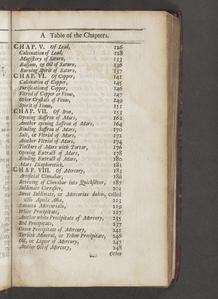 A Table of the Chapters.
CHAP. V. Of Lead, 126
Calcination of Lead, 128
Magistery of Saturn, 133
Balsom, or Oil of Saturn, 136
Burning Spirit of Saturn, 137
CHAP. VI. Of Copper, 141
Calcination of Copper, 145
Purification of Copper, 146
Vitriol of Copper or Venus, 147
Other Crystals of Venus, 149
Spirit of Venus, 151
CHAP. VII. Of Iron,
Opening Saffron of Mars,
Another opening Saffron of Mars, 164
Binding Saffron of Mars, 170
Salt, or Vitriol of Mars, 171
Another Vitriol of Mars, 174
Tincture of Mars with Tartar, 176
Opening Extract of Mars, 178
Binding Extract of Mars, 180
Mars Diaphoretick, 181
CHAP. VIII. Of Mercury,
Artificial Cinnabar, 186
Reviving of Cinnabar into Quicksilver, 187
Sublimate Corrosive,
Sweet Sublimate, or Mercurius dulcis, called
Aquila Alba,
Mercuriale,
White Precipitate, 227
Another white Precipitate of Mercury, 235
Red Precipitate, 237
Green Precipitate of Mercury, 241
Turbith Mineral, or Yellow Precipitate, 246
Oil, or Liquor of Mercury, 247
Another Oil of Mercury, 248
Other